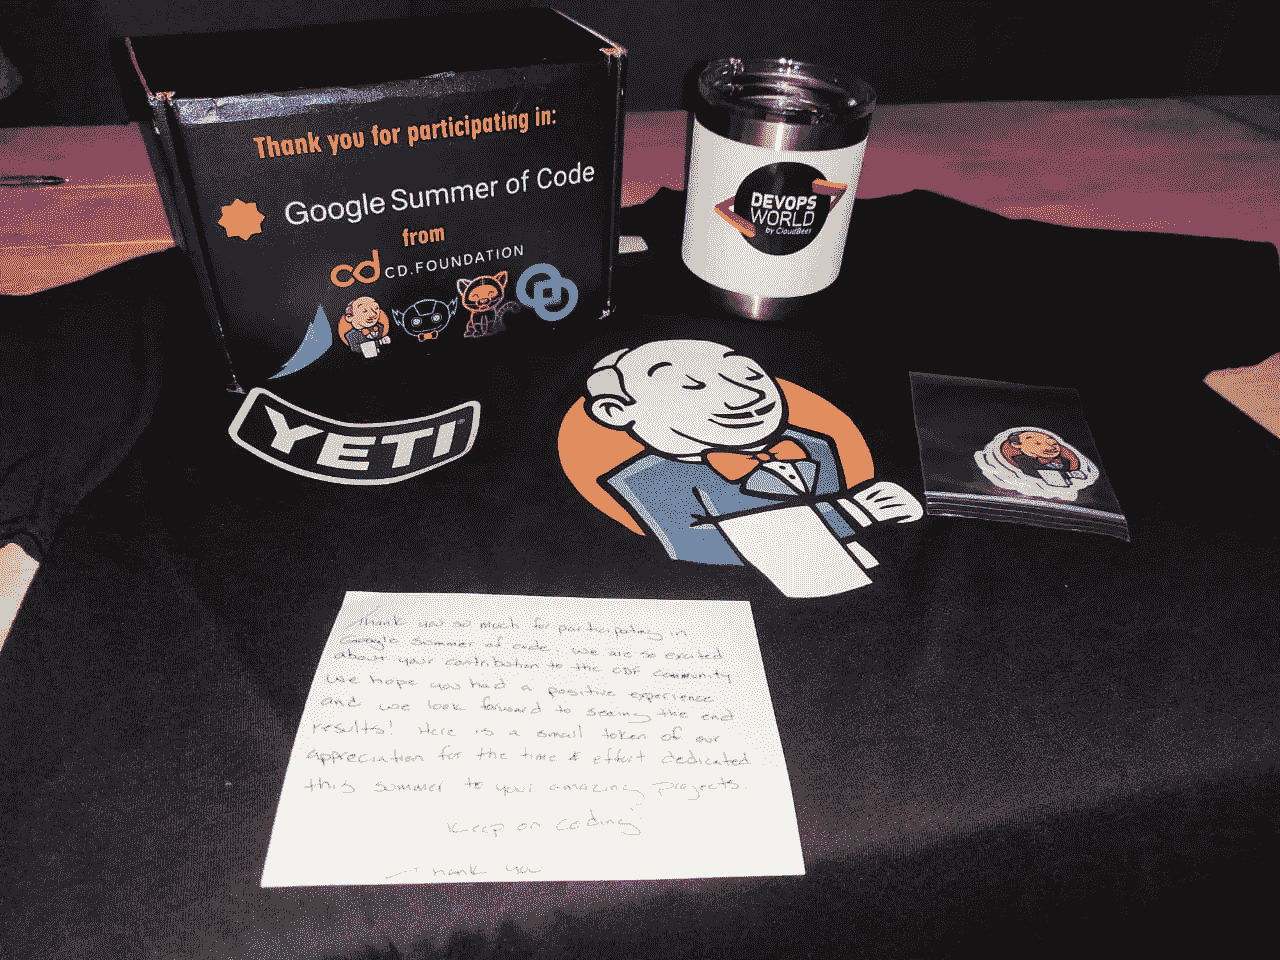 Thank you for participating in:
Google Summer of Code
from
cd CD.FOUNDATION
DEVOPS
WORLD
by CloudBees
YETI
Thank you so much for participating in
Google Summer of code. We are so excited
about your contribution to the CDF community
We hope you had a positive experience
and we look forward to seeing the end
results! Here is a small token of our
appreciation for the time & effort dedicated
this summer to your amazing projects.
Keep on coding
Thank you